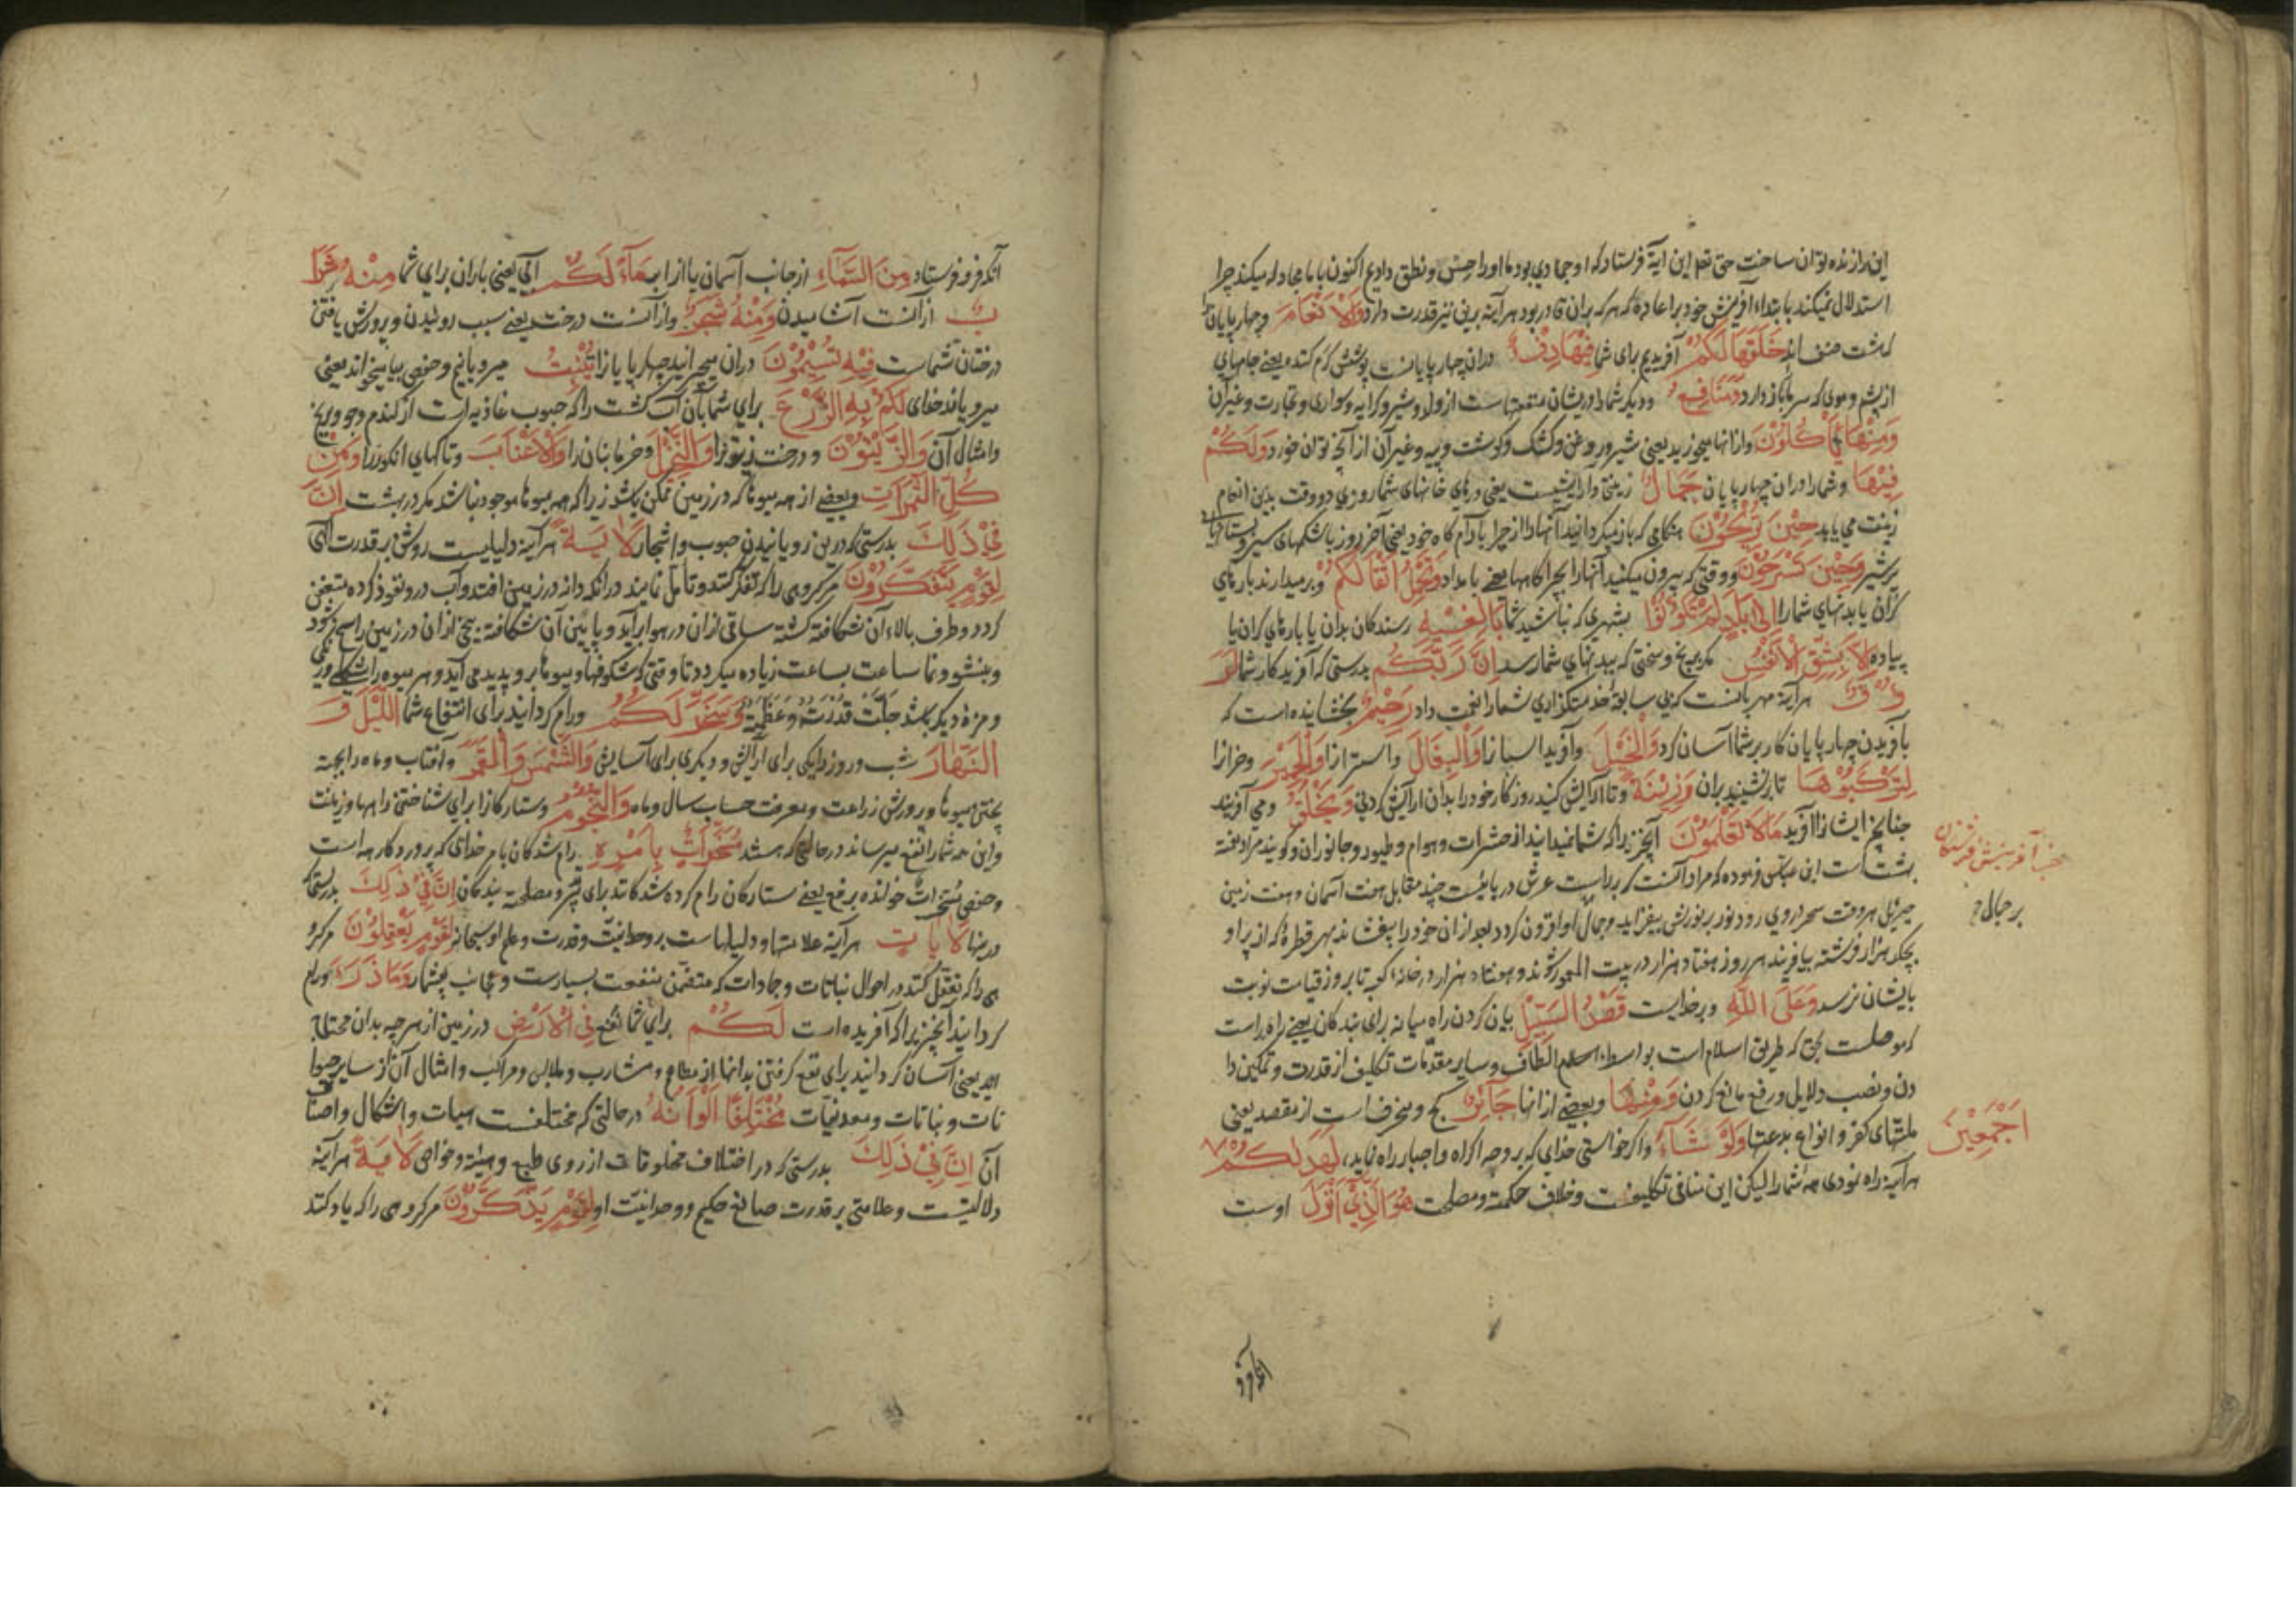 این را زنده توان ساخت حق تعالی این آیة فرستاد که او جمادی بود ما او را حس و نطق دادیم اکنون با ما مجادله میکند چرا
استدلال نمیکند بابتداء آفرینش خود بر اعاده که هر که بران قادر بود هرآینه برین نیز قدرت دارد وَالْاَنْعَامَ و چهارپایان
که هشت صنف اند خَلَقَهَا لَكُمْ آفریدیم برای شما فِیْهَا دِفْءٌ دران چهارپایانست پوشش گرم کننده یعنی جامهای
از پشم و موی که سرما باز دارد وَمَنَافِعُ و دیگر شما را در ایشان منفعتهاست از ولد و شیر و کرایه و سواری و تجارت و غیر آن
وَمِنْهَا تَأْكُلُوْنَ و از انها میخورید یعنی شیر و روغن و کشک و گوشت و پیه و غیر آن از آنچه توان خورد وَلَكُمْ
فِیْهَا و شما را دران چهارپایان جَمَالٌ زینتی و آرایشیست یعنی درهای خانهای شما روزی دو وقت بدین انعام
زینت می یابد حِیْنَ تُرِیْحُوْنَ هنگامی که باز میگردانید آنها را از چرا بآرامگاه خود یعنی آخر روز با شکمهای سیر و پستانهای
پر شیر وَحِیْنَ تَسْرَحُوْنَ و وقتی که بیرون میکنید آنها را بچراگاهها یعنی بامداد وَتَحْمِلُ اَثْقَالَكُمْ و بر میدارند بارهای
گران یا بدنهای شما را اِلٰی بَلَدٍ لَمْ تَكُوْنُوْا بشهری که نباشید شما بَالِغِیْهِ رسندگان بدان یا بارهای گران یا
پیاده اِلَّا بِشِقِّ الْاَنْفُسِ مگر برنج و سختی که ببدنهای شما رسد اِنَّ رَبَّكُمْ بدرستی که آفریدگار شما لَرَ
ءُوْفٌ هرآینه مهربانست که بی سابقه خدمتگزاری شما را نعمت داد رَحِیْمٌ بخشاینده است که
بآفریدن چهارپایان کار بر شما آسان کرد وَالْخَیْلَ و آفرید اسپانرا وَالْبِغَالَ و استرانرا وَالْحَمِیْرَ و خرانرا
لِتَرْكَبُوْهَا تا بر نشینید بران وَزِیْنَةً و تا آرایش کنید روزگار خود را بدان آرایش کردنی وَیَخْلُقُ و می آفریند
چنانچه ایشانرا آفرید مَالَا تَعْلَمُوْنَ آنچیزی را که شما نمیدانید از حشرات و هوام و طیور و جانوران و گویند مراد یمنه
بهشتست ابن عباس فرموده که مراد آنست که بر راست عرش دریائیست چند مقابل هفت آسمان و هفت زمین
جبرئیل هر وقت سحر در وی رود نور بر نورش بیفزاید و جمال او افزون گردد بعد ازان خود را بیفشاند بهر قطره که از پر او
بچکد هزار فرشته بیافریند هر روز هفتاد هزار در بیت المعمور شوند و هفتاد هزار در خانه کعبه تا بروز قیامت نوبت
بایشان نرسد وَعَلَی اللّٰهِ و بر خدایست قَصْدُ السَّبِیْلِ بیان کردن راه میانه برای بندگان یعنی راه راست
که موصلست بحق که طریق اسلام است بواسطه اعلام الطاف و سایر مقدمات تکلیف از قدرت و تمکین دا
دن و نصب دلایل و رفع مانع کردن وَمِنْهَا و بعضی از انها جَآئِرٌ کج و منحرف است از مقصد یعنی
ملتهای کفر و انواع بدعتها وَلَوْ شَآءَ و اگر خواستی خدای که بر وجه اکراه و اجبار راه نماید لَهَدٰىكُمْ
هرآینه راه نمودی همه شما را لیکن این منافی تکلیفست و خلاف حکمت و مصلحت هُوَ الَّذِیْ اَنْزَلَ اوست
آفرینش فرشتگان
بر جبال
اَجْمَعِیْنَ
آنکه فرو
آنکه فرو فرستاد مِنَ السَّمَآءِ از جانب آسمان یا از ابر مَآءً لَكُمْ آبی یعنی باران برای شما مِنْهُ شَرَا
بٌ ازآنست آشامیدن وَمِنْهُ شَجَرٌ و ازآنست درخت یعنی سبب روئیدن و پرورش یافتن
درختان شماست فِیْهِ تُسِیْمُوْنَ دران میچرانید چهارپایانرا یُنْبِتُ میرویانیم و حفص بیا میخواند یعنی
میرویاند خدای لَكُمْ بِهِ الزَّرْعَ برای شما بآن آب کشت را که حبوب غاذیه است از گندم و جو و برنج
و امثال آن وَالزَّیْتُوْنَ و درخت زیتونرا وَالنَّخِیْلَ و خرمابنان را وَالْاَعْنَابَ و تاکهای انگورنرا وَمِنْ
كُلِّ الثَّمَرَاتِ و بعضی از همه میوها که در زمین ممکن باشد زیرا که همه میوها موجود نباشد مگر در بهشت اِنَّ
فِیْ ذٰلِكَ بدرستی که درین رویانیدن حبوب و اشجار لَاٰیَةً هرآینه دلیلیست روشن بر قدرت الهی
لِقَوْمٍ یَتَفَكَّرُوْنَ مر گروهی را که تفکر کنند و تامل نمایند در آنکه دانه در زمین افتد و آب درو نفوذ کرده متعفن
گردد و طرف بالاء آن شکافته گشته ساقی ازان در هوا برآید و پایین آن شکافته بیخی ازان در زمین راسخ شود
و بنشو و نما ساعت بساعت زیاده میگردد تا وقتی که شکوفها و میوها برو پدید می آید و هر میوه را شکلی و رنگی
و مزه دیگر باشد جلّت قدرته و عظمته وَسَخَّرَ لَكُمْ و رام گردانید برای انتفاع شما الَّیْلَ وَ
النَّهَارَ شب و روز را یکی برای آرایش و دیگری برای آسایش وَالشَّمْسَ وَالْقَمَرَ و آفتاب و ماه را بجهة
پختن میوها و پرورش زراعت و معرفت حساب سال و ماه وَالنُّجُوْمَ و ستارگانرا برای شناختن راهها و زینت
و این همه شما را نفع میرساند در حالتی که هستند مُسَخَّرَاتٌ بِاَمْرِهٖ رام شدگان بامر خدای که پروردگار همه است
و حفص مُسَخَّرَاتٌ خوانده برفع یعنی ستارگان رام کرده شدگانند برای مصلحت بندگان اِنَّ فِیْ ذٰلِكَ بدرستیکه
درینها لَاٰیَاتٍ هرآینه علامتها و دلیلهاست بر وحدانیت و قدرت و علم او سبحانه لِقَوْمٍ یَعْقِلُوْنَ مر گرو
هی را که تعقل کنند در احوال نباتات و جمادات که متضمن منفعت بسیارست و عجائب بیشمار وَمَا ذَرَاَ و رام
گردانید آنچیزی را که آفریده است لَكُمْ برای شما نفع فِی الْاَرْضِ در زمین از هر چه بدان محتاج
اید یعنی آسان گردانید برای نفع گرفتن بدانها از مطاعم و مشارب و ملابس و مراکب و امثال آن از سایر حیوا
نات و نباتات و معدنیات مُخْتَلِفًا اَلْوَانُهٗ در حالتی که مختلفست هیات و اشکال و اصناف
آن اِنَّ فِیْ ذٰلِكَ بدرستی که در اختلاف مخلوقات از روی طبع و هیئة و خواص لَاٰیَةً هرآینه
دلالتیست و علامتی بر قدرت صانع حکیم و وحدانیت او لِقَوْمٍ یَذَّكَّرُوْنَ مر گروهی را که یاد کنند